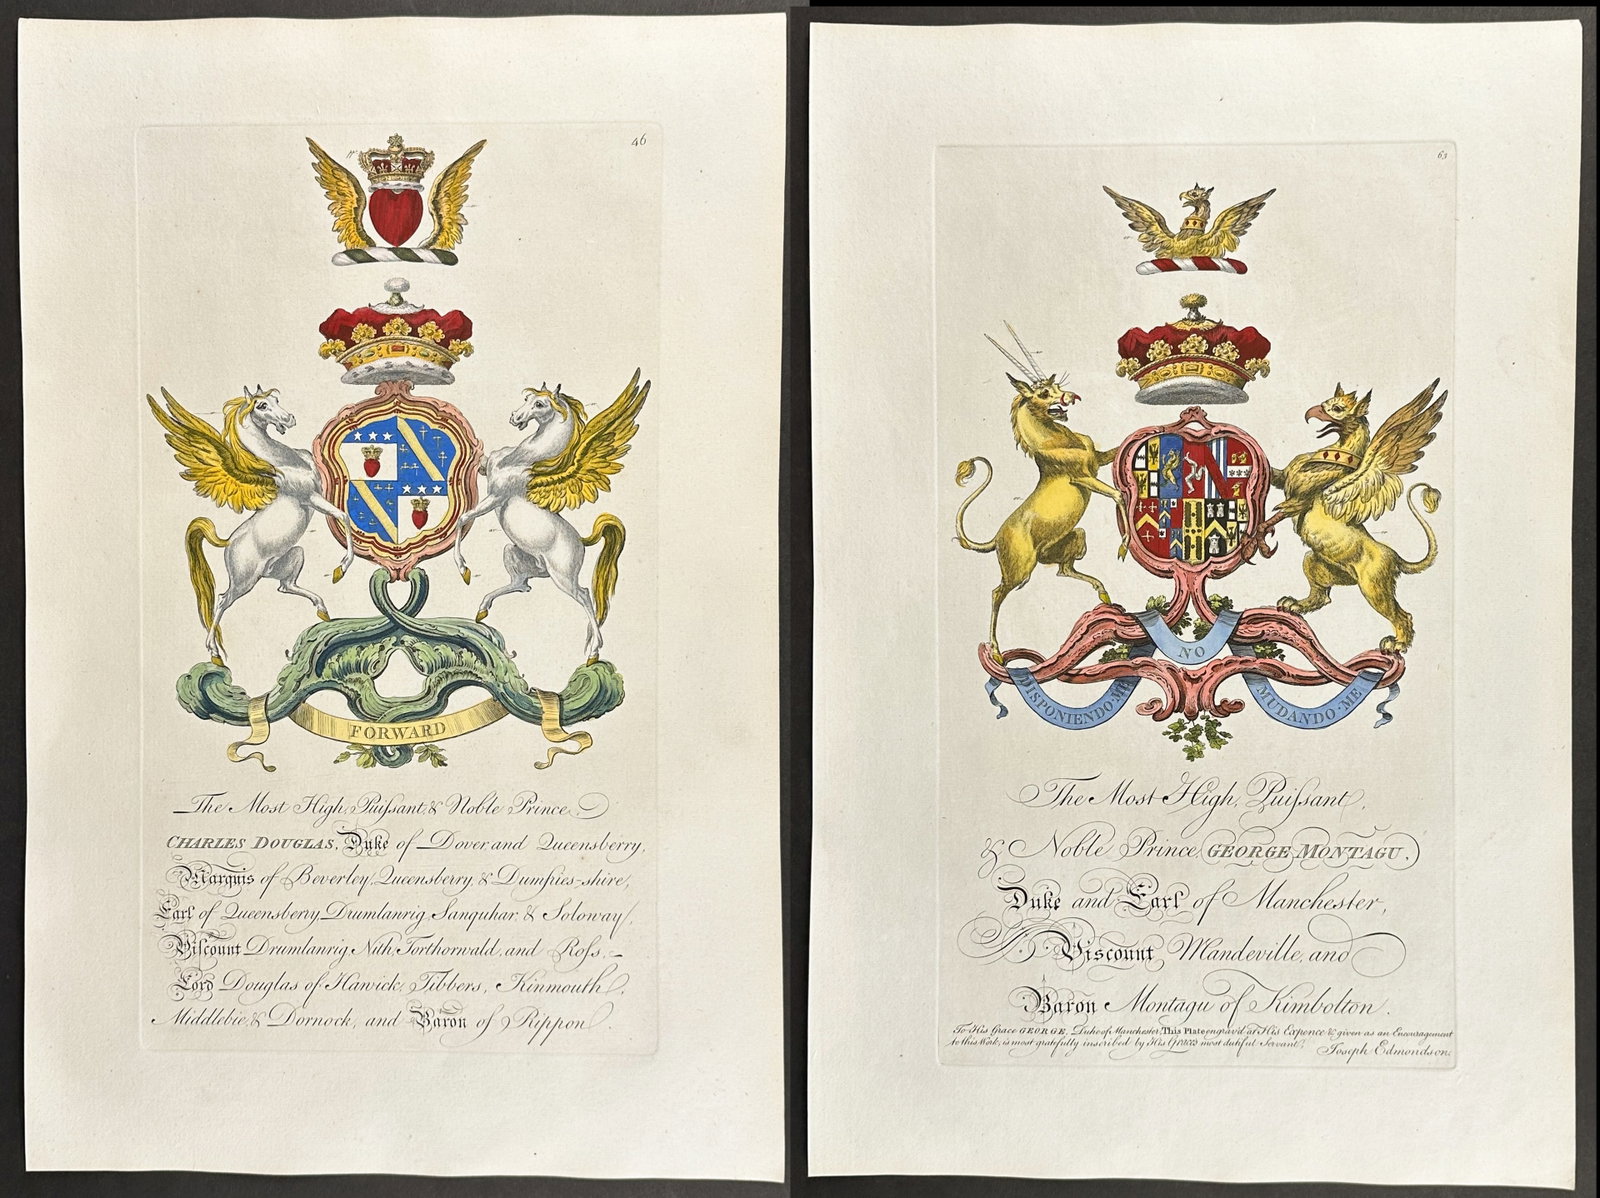 46
FORWARD
The Most High, Puiſsant, & Noble Prince,
CHARLES DOUGLAS, Duke of Dover and Queensberry,
Marquis of Beverley, Queensberry, & Dumfries-shire,
Earl of Queensberry, Drumlanrig, Sanquhar, & Soloway,
Viſcount Drumlanrig, Nith, Torthorwald, and Roſs,
Lord Douglas of Hawick, Tibbers, Kinmouth,
Middlebie, & Dornock, and Baron of Rippon.
63
NO
DISPONIENDO·ME MUDANDO·ME
The Most High, Puiſsant,
& Noble Prince GEORGE MONTAGU,
Duke and Earl of Manchester,
Viscount Mandeville, and
Baron Montagu of Kimbolton.
To His Grace GEORGE, Duke of Manchester, This Plate engrav'd at His Expence & given as an Encouragement
to this Work, is most gratefully inscribed by His Graces most dutiful Servant,
Joseph Edmondson.